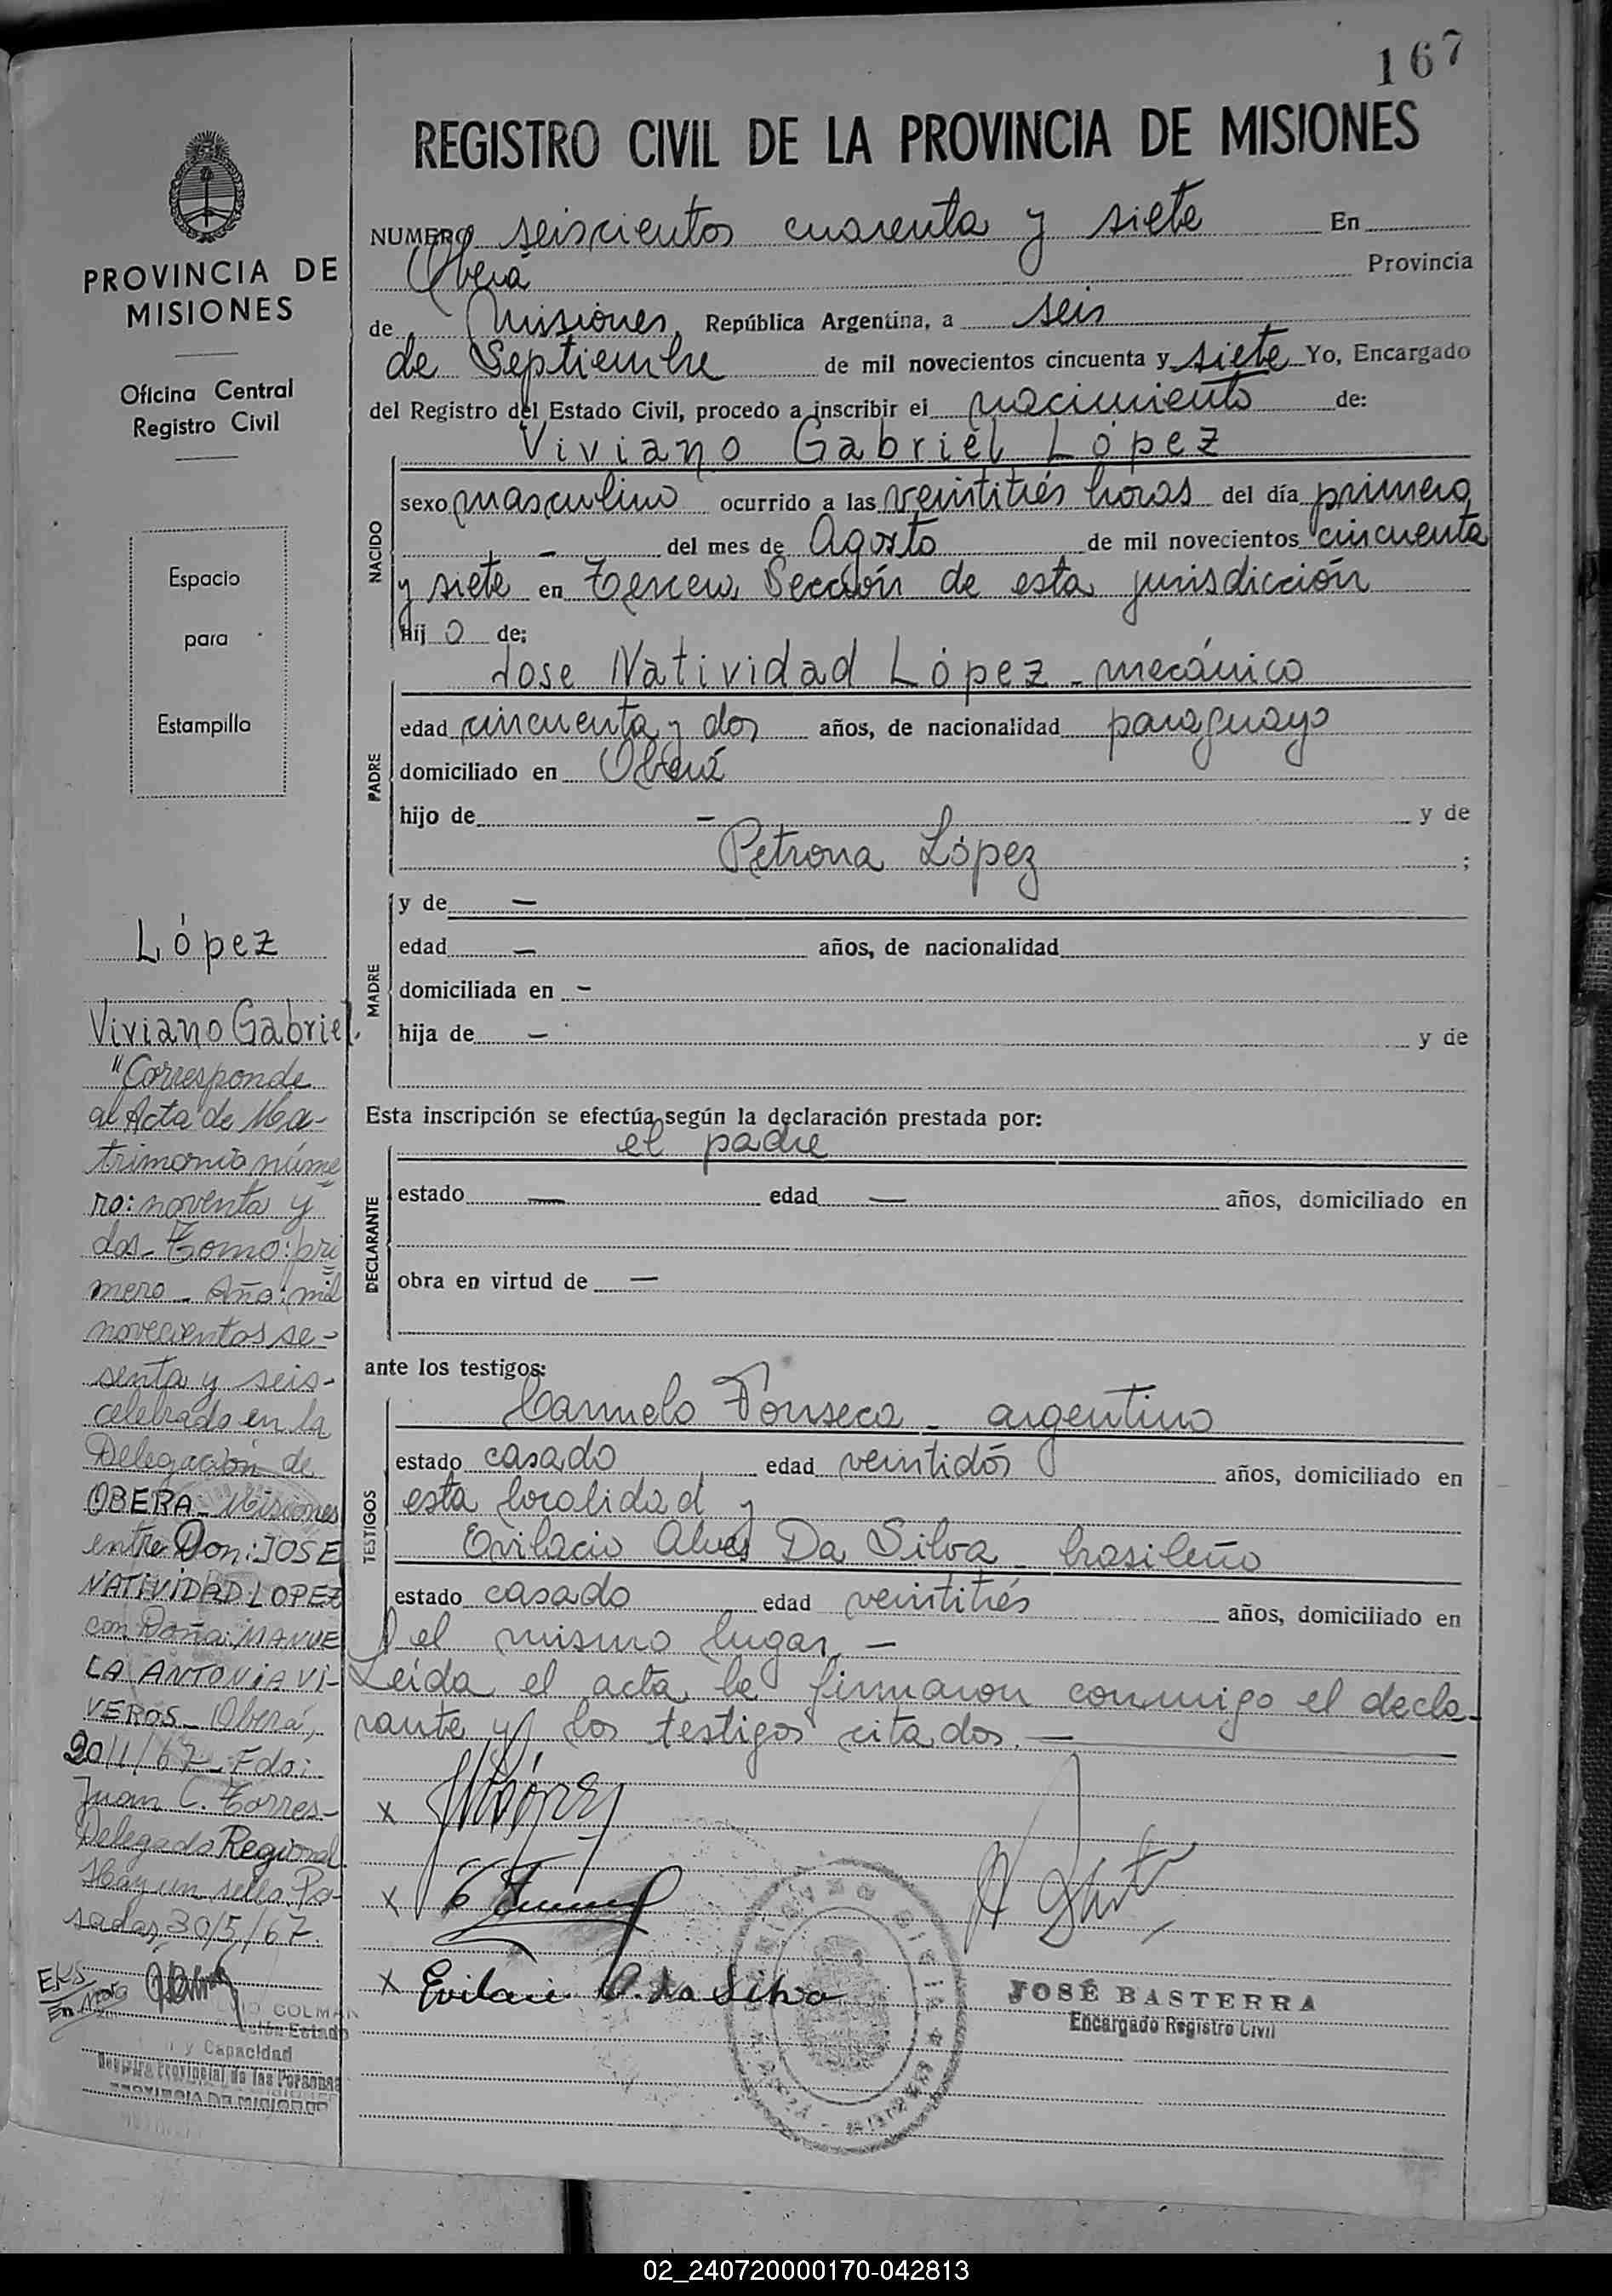 167
REGISTRO CIVIL DE LA PROVINCIA DE MISIONES
PROVINCIA DE
MISIONES
Oficina Central
Registro Civil
Espacio
para
Estampilla
López
Viviano Gabriel.
"Corresponde
al Acta de Ma-
trimonio núme
ro: noventa y
dos- Tomo: pri
mero - Año: mil
novecientos se-
senta y seis-
celebrado en la
Delegación de
OBERA - Misiones
entre Don: JOSE
NATIVIDAD LOPEZ
con Doña: MANUE
LA ANTONIA VI-
VEROS - Oberá,
20/1/67 - Fdo:
Juan C. Torres-
Delegado Regional.
Hay un sello. Po-
sadas, 30/5/67.
COLMAN
y Capacidad
Registro Provincial de las Personas
PROVINCIA DE MISIONES
NUMERO seiscientos cuarenta y siete En
Oberá Provincia
de Misiones, República Argentina, a seis
de Septiembre de mil novecientos cincuenta y siete Yo, Encargado
del Registro del Estado Civil, procedo a inscribir el nacimiento de:
Viviano Gabriel López
NACIDO
sexo masculino ocurrido a las veintitrés horas del día primero
- del mes de Agosto de mil novecientos cincuenta
y siete en Tercera Sección de esta jurisdicción
hij o de:
José Natividad López - mecánico
PADRE
edad cincuenta y dos años, de nacionalidad paraguayo
domiciliado en Oberá
hijo de - y de
Petrona López ;
MADRE
y de -
edad - años, de nacionalidad
domiciliada en -
hija de - y de
Esta inscripción se efectúa según la declaración prestada por:
el padre
DECLARANTE
estado - edad - años, domiciliado en
obra en virtud de -
ante los testigos:
Carmelo Fonseca - argentino
TESTIGOS
estado casado edad veintidós años, domiciliado en
esta localidad y
Ovilacio Alves Da Silva - brasileño
estado casado edad veintitrés años, domiciliado en
el mismo lugar. -
Leída el acta la firmaron conmigo el decla-
rante y los testigos citados. -
x
x
x Evilaci A. da Silva
JOSÉ BASTERRA
Encargado Registro Civil
02_240720000170-042813